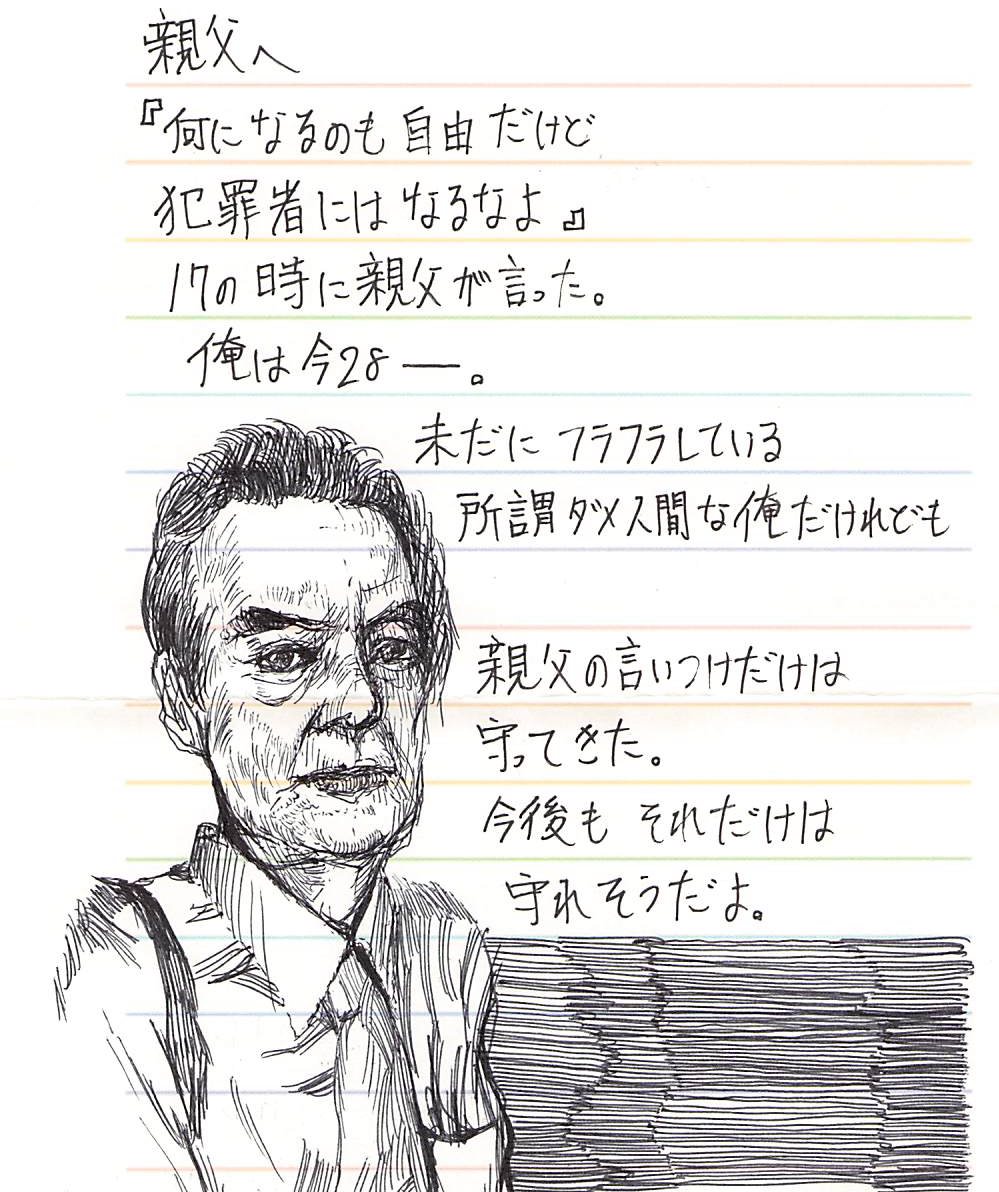 親父へ
『何になるのも自由だけど
犯罪者にはなるなよ』
17の時に親父が言った。
俺は今28―。
未だにフラフラしている
所謂ダメ人間な俺だけれども
親父の言いつけだけは
守ってきた。
今後もそれだけは
守れそうだよ。